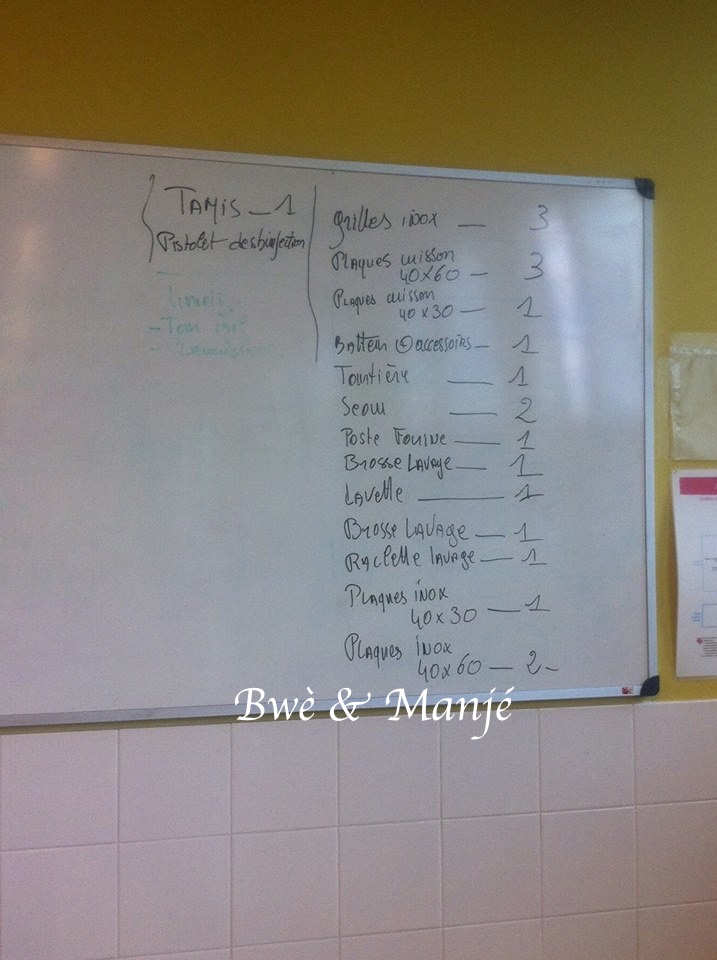 TAMIS _ 1
Pistolet desbinfection
grilles inox — 3
Plaques cuisson
40x60 — 3
Plaques cuisson
40x30 — 1
Batteur + accessoirs — 1
Tourtière — 1
Seau — 2
Poste Farine — 1
Brosse LAVAge — 1
LAVette — 1
Brosse LAVAge — 1
RAclette lavage — 1
Plaques inox
40x30 — 1
Plaques inox
40x60 — 2 -
Bwè & Manjé